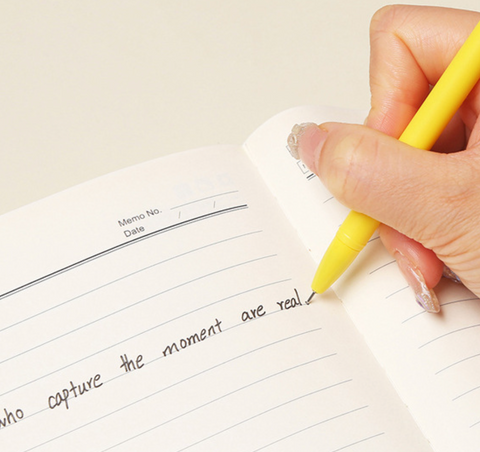 Memo No.
Date / /
who capture the moment are real.